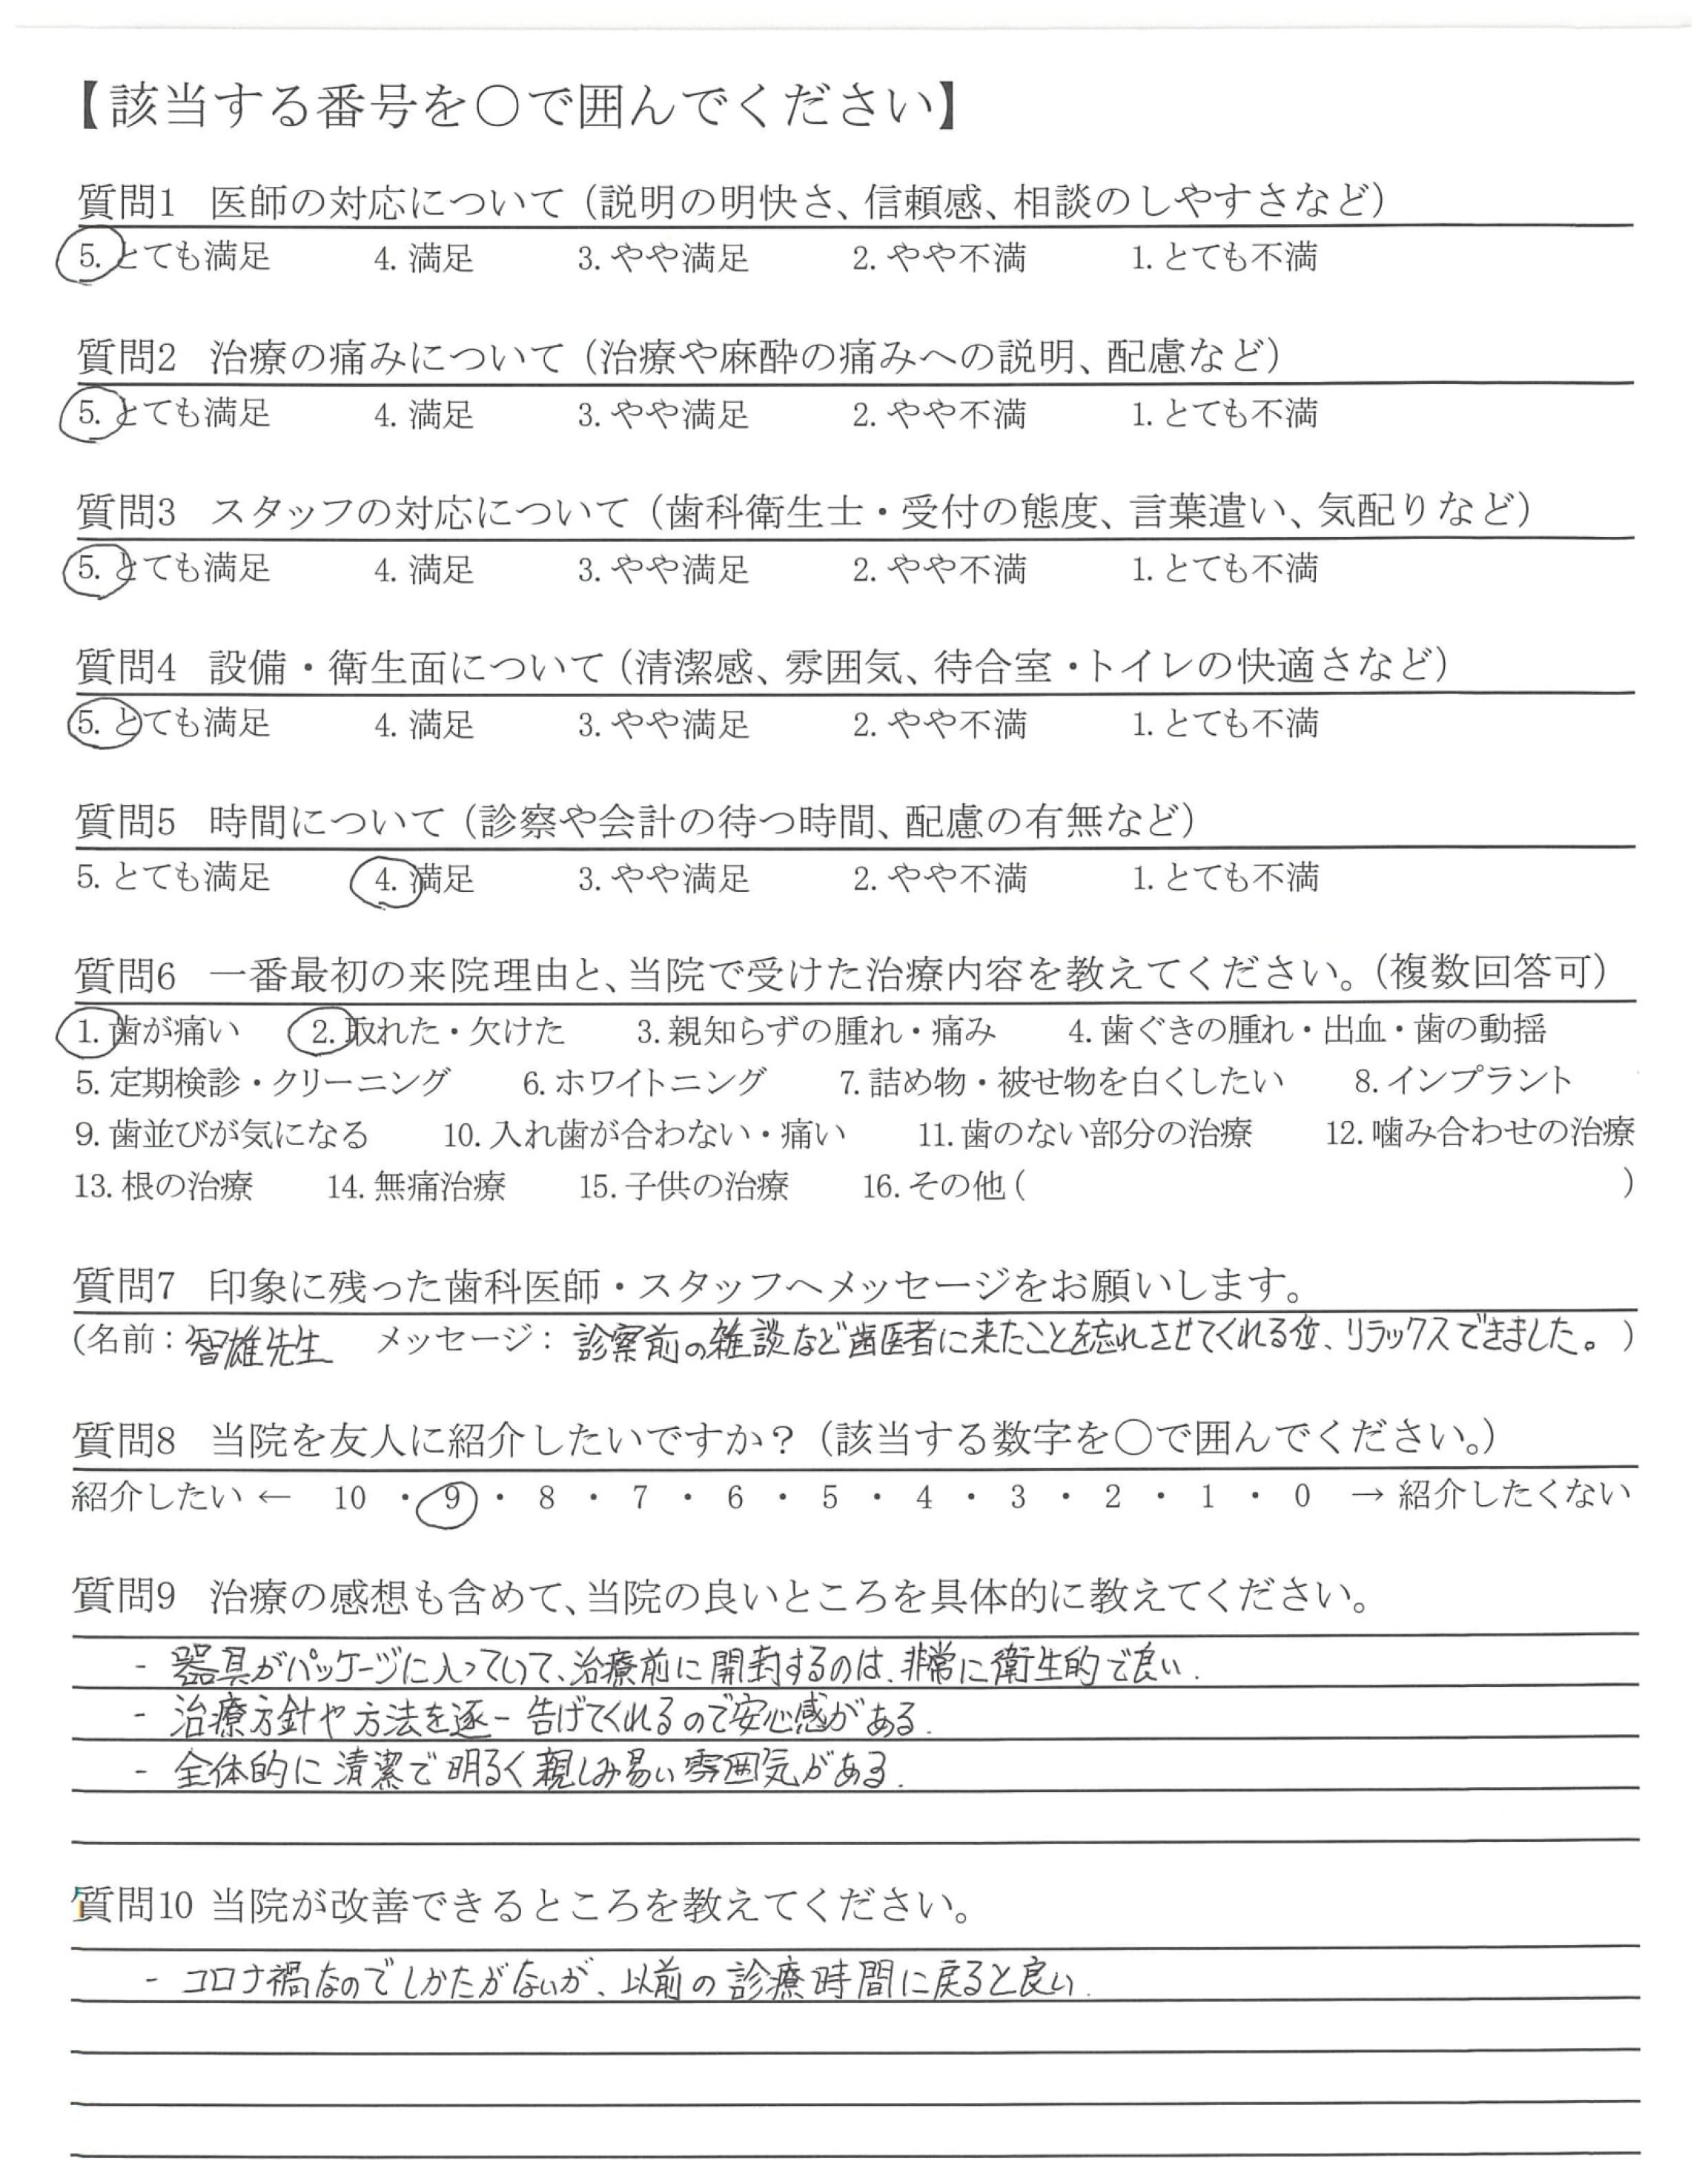 【該当する番号を○で囲んでください】
質問1 医師の対応について（説明の明快さ、信頼感、相談のしやすさなど）
5. とても満足 4. 満足 3. やや満足 2. やや不満 1. とても不満
質問2 治療の痛みについて（治療や麻酔の痛みへの説明、配慮など）
5. とても満足 4. 満足 3. やや満足 2. やや不満 1. とても不満
質問3 スタッフの対応について（歯科衛生士・受付の態度、言葉遣い、気配りなど）
5. とても満足 4. 満足 3. やや満足 2. やや不満 1. とても不満
質問4 設備・衛生面について（清潔感、雰囲気、待合室・トイレの快適さなど）
5. とても満足 4. 満足 3. やや満足 2. やや不満 1. とても不満
質問5 時間について（診察や会計の待つ時間、配慮の有無など）
5. とても満足 4. 満足 3. やや満足 2. やや不満 1. とても不満
質問6 一番最初の来院理由と、当院で受けた治療内容を教えてください。（複数回答可）
1. 歯が痛い 2. 取れた・欠けた 3. 親知らずの腫れ・痛み 4. 歯ぐきの腫れ・出血・歯の動揺
5. 定期検診・クリーニング 6. ホワイトニング 7. 詰め物・被せ物を白くしたい 8. インプラント
9. 歯並びが気になる 10. 入れ歯が合わない・痛い 11. 歯のない部分の治療 12. 噛み合わせの治療
13. 根の治療 14. 無痛治療 15. 子供の治療 16. その他（ ）
質問7 印象に残った歯科医師・スタッフへメッセージをお願いします。
（名前：智雄先生 メッセージ：診察前の雑談など歯医者に来たことを忘れさせてくれる位、リラックスできました。）
質問8 当院を友人に紹介したいですか？（該当する数字を○で囲んでください。）
紹介したい ← 10 ・ 9 ・ 8 ・ 7 ・ 6 ・ 5 ・ 4 ・ 3 ・ 2 ・ 1 ・ 0 → 紹介したくない
質問9 治療の感想も含めて、当院の良いところを具体的に教えてください。
- 器具がパッケージに入っていて、治療前に開封するのは、非常に衛生的で良い.
- 治療方針や方法を逐一告げてくれるので安心感がある.
- 全体的に清潔で明るく親しみ易い雰囲気がある.
質問10 当院が改善できるところを教えてください。
- コロナ禍なのでしかたがないが、以前の診療時間に戻ると良い.